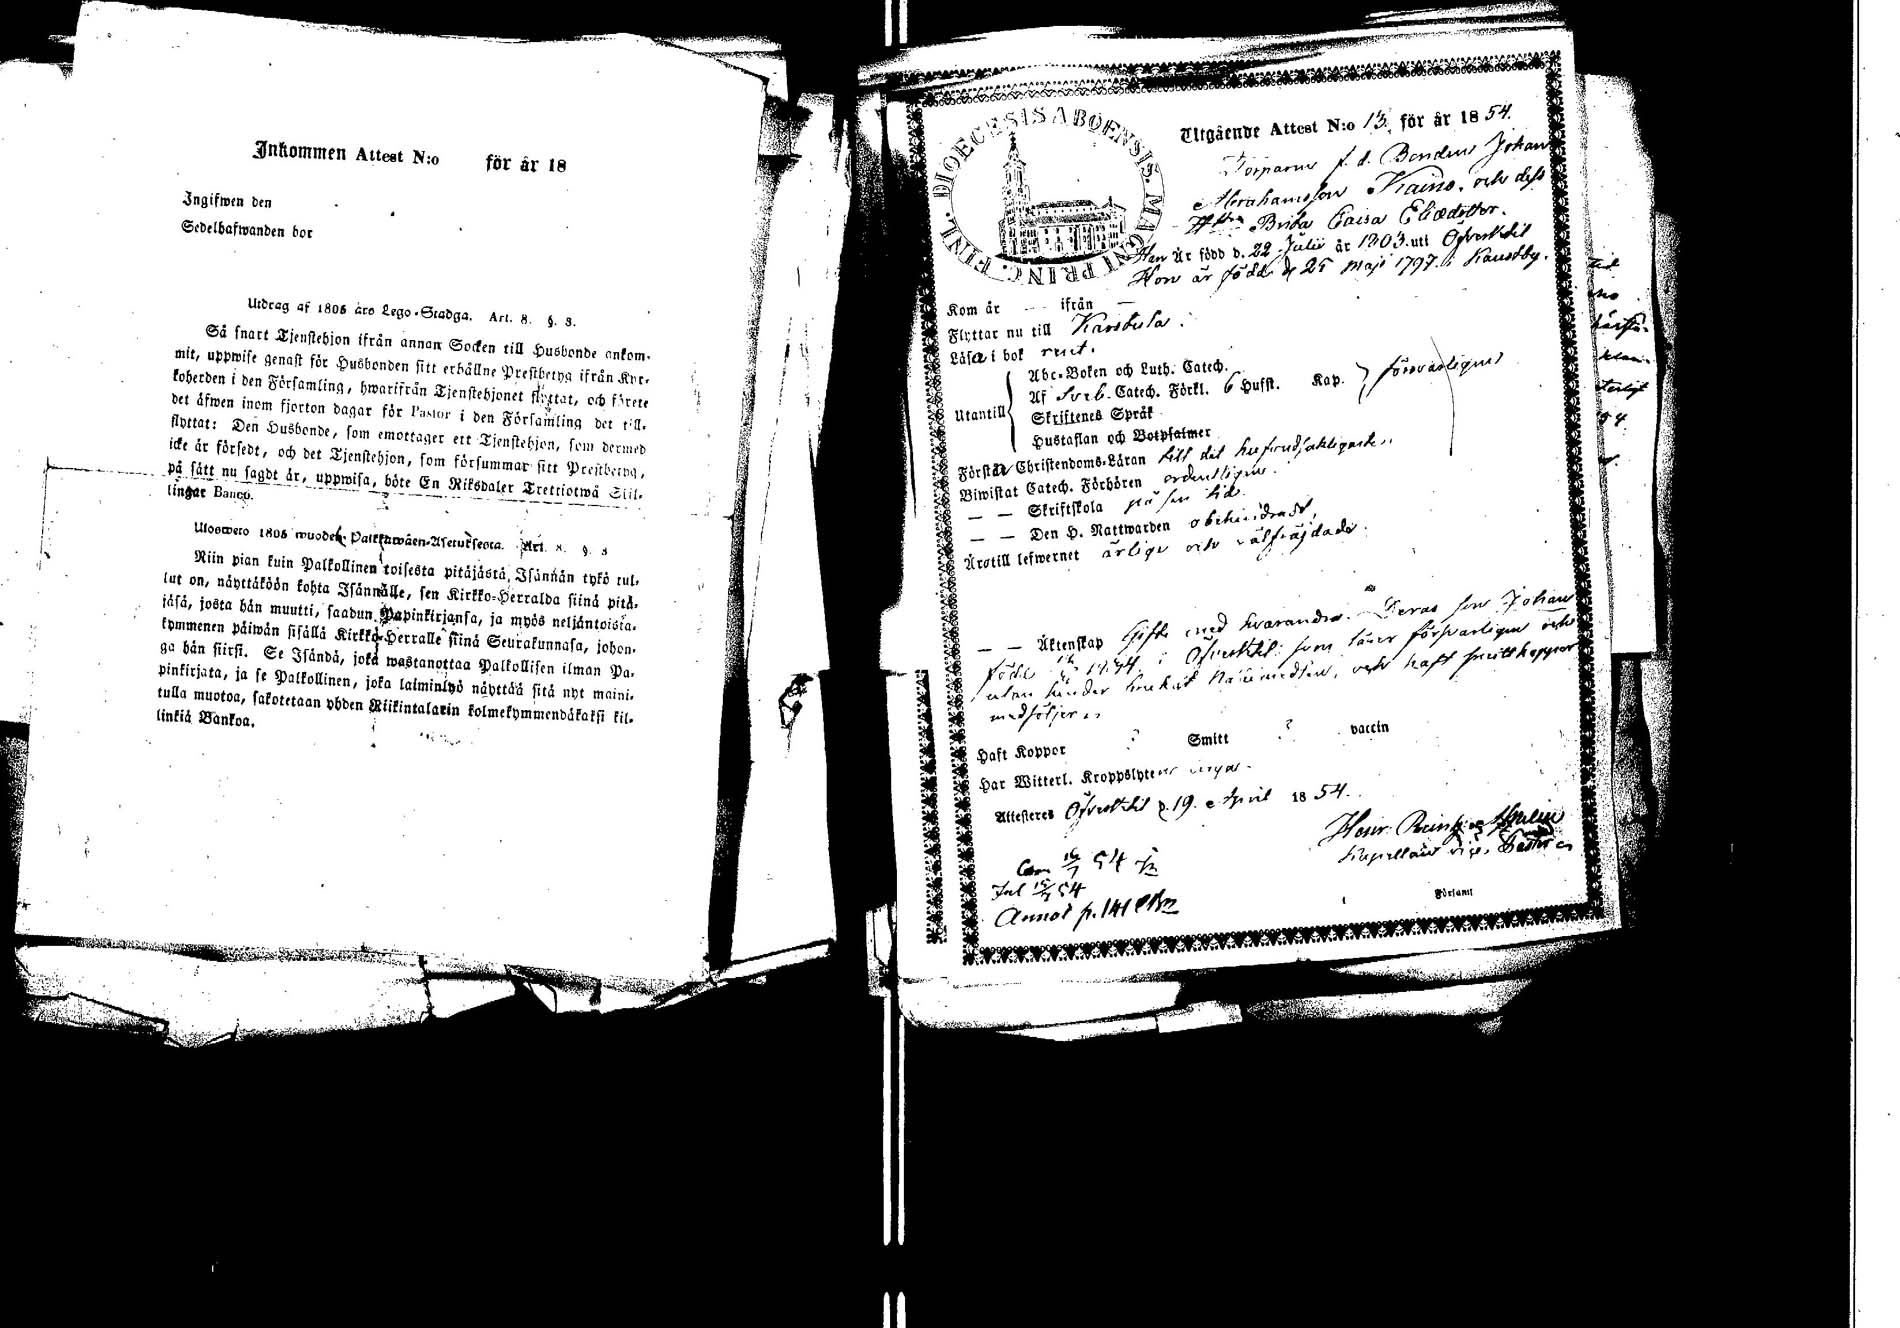 Inkommen Attest N:o för år 18
Ingifwen den
Sedelhafwanden bor
Utdrag af 1805 års Lego-Stadga. Art. 8. §. 3.
Så snart Tjenstehjon ifrån annan Socken till Husbonde ankom-
mit, uppwise genast för Husbonden sitt erhållne Prestbetyg ifrån Kyr-
koherden i den Församling, hwarifrån Tjenstehjonet flyttat, och förete
det äfwen inom fjorton dagar för Pastor i den Församling det till-
flyttat: Den Husbonde, som emottager ett Tjenstehjon, som dermed
icke är försedt, och det Tjenstehjon, som försummar sitt Prestbetyg,
på sätt nu sagdt är, uppwisa, böte En Riksdaler Trettiotwå Skil-
lingar Banco.
Ulosweto 1805 wuoden Palkkawäen-Asetuksesta. Art. 8. §. 3
Niin pian kuin Palkollinen toisesta pitäjästä Isännän tykö tul-
lut on, näyttäköön kohta Isännälle, sen Kirkko-Herralda siinä pitä-
jäsä, josta hän muutti, saadun Papinkirjansa, ja myös neljäntoista-
kymmenen päiwän sisällä Kirkko-Herralle siinä Seurakunnasa, johon-
ga hän siirsi. Se Isändä, joka wastanottaa Palkollisen ilman Pa-
pinkirjata, ja se Palkollinen, joka laiminlyö näyttää sitä nyt maini-
tulla muotoa, sakotetaan yhden Riikintalarin kolmekymmendäkaksi kil-
linkiä Bankoa.
DIOECESIS ABOENSIS. MAGNI PRINC. FINL.
Utgående Attest N:o 13 för år 1854.
Torparen f. d. Bonden Johan
Abrahamsson Kaino. och dess
Hustru Brita Caisa Eliedotter.
Han Är född d. 22 Julii år 1803. uti Öfvervetil
Hon är född d 25 Maji 1797. i Kaustby.
Kom år — ifrån —
Flyttar nu till Karstula.
Läsa i bok rent.
Utantill
Abc-Boken och Luth. Catech.
Af Sveb. Catech. Förkl. 6 Hufst. Kap.
försvarligen
Skriftenes Språk
Hustaflan och Botpsalmer
Förstår Christendoms-Läran till det hufvudsakligaste.
Biwistat Catech. Förhören ordentligen.
— — Skriftskola på sin tid.
— — Den H. Nattwarden obehindradt,
Ärotill lefwernet ärlige och välfräjdade.
— — Äktenskap Gifte med hvarandra. Deras son Johan
född
i Öfvervetil som läser försvarligen och
utan hinder
och haft smittkoppor
medföljer.
Haft Koppor ? Smitt ? vaccin
Har Witterl. Kroppslyten inga.
Attesteres Öfvervetil d. 19. April 1854.
Henr.
Kapellan vice Pastor
54
Inl 54
Annot p. 141
Församl